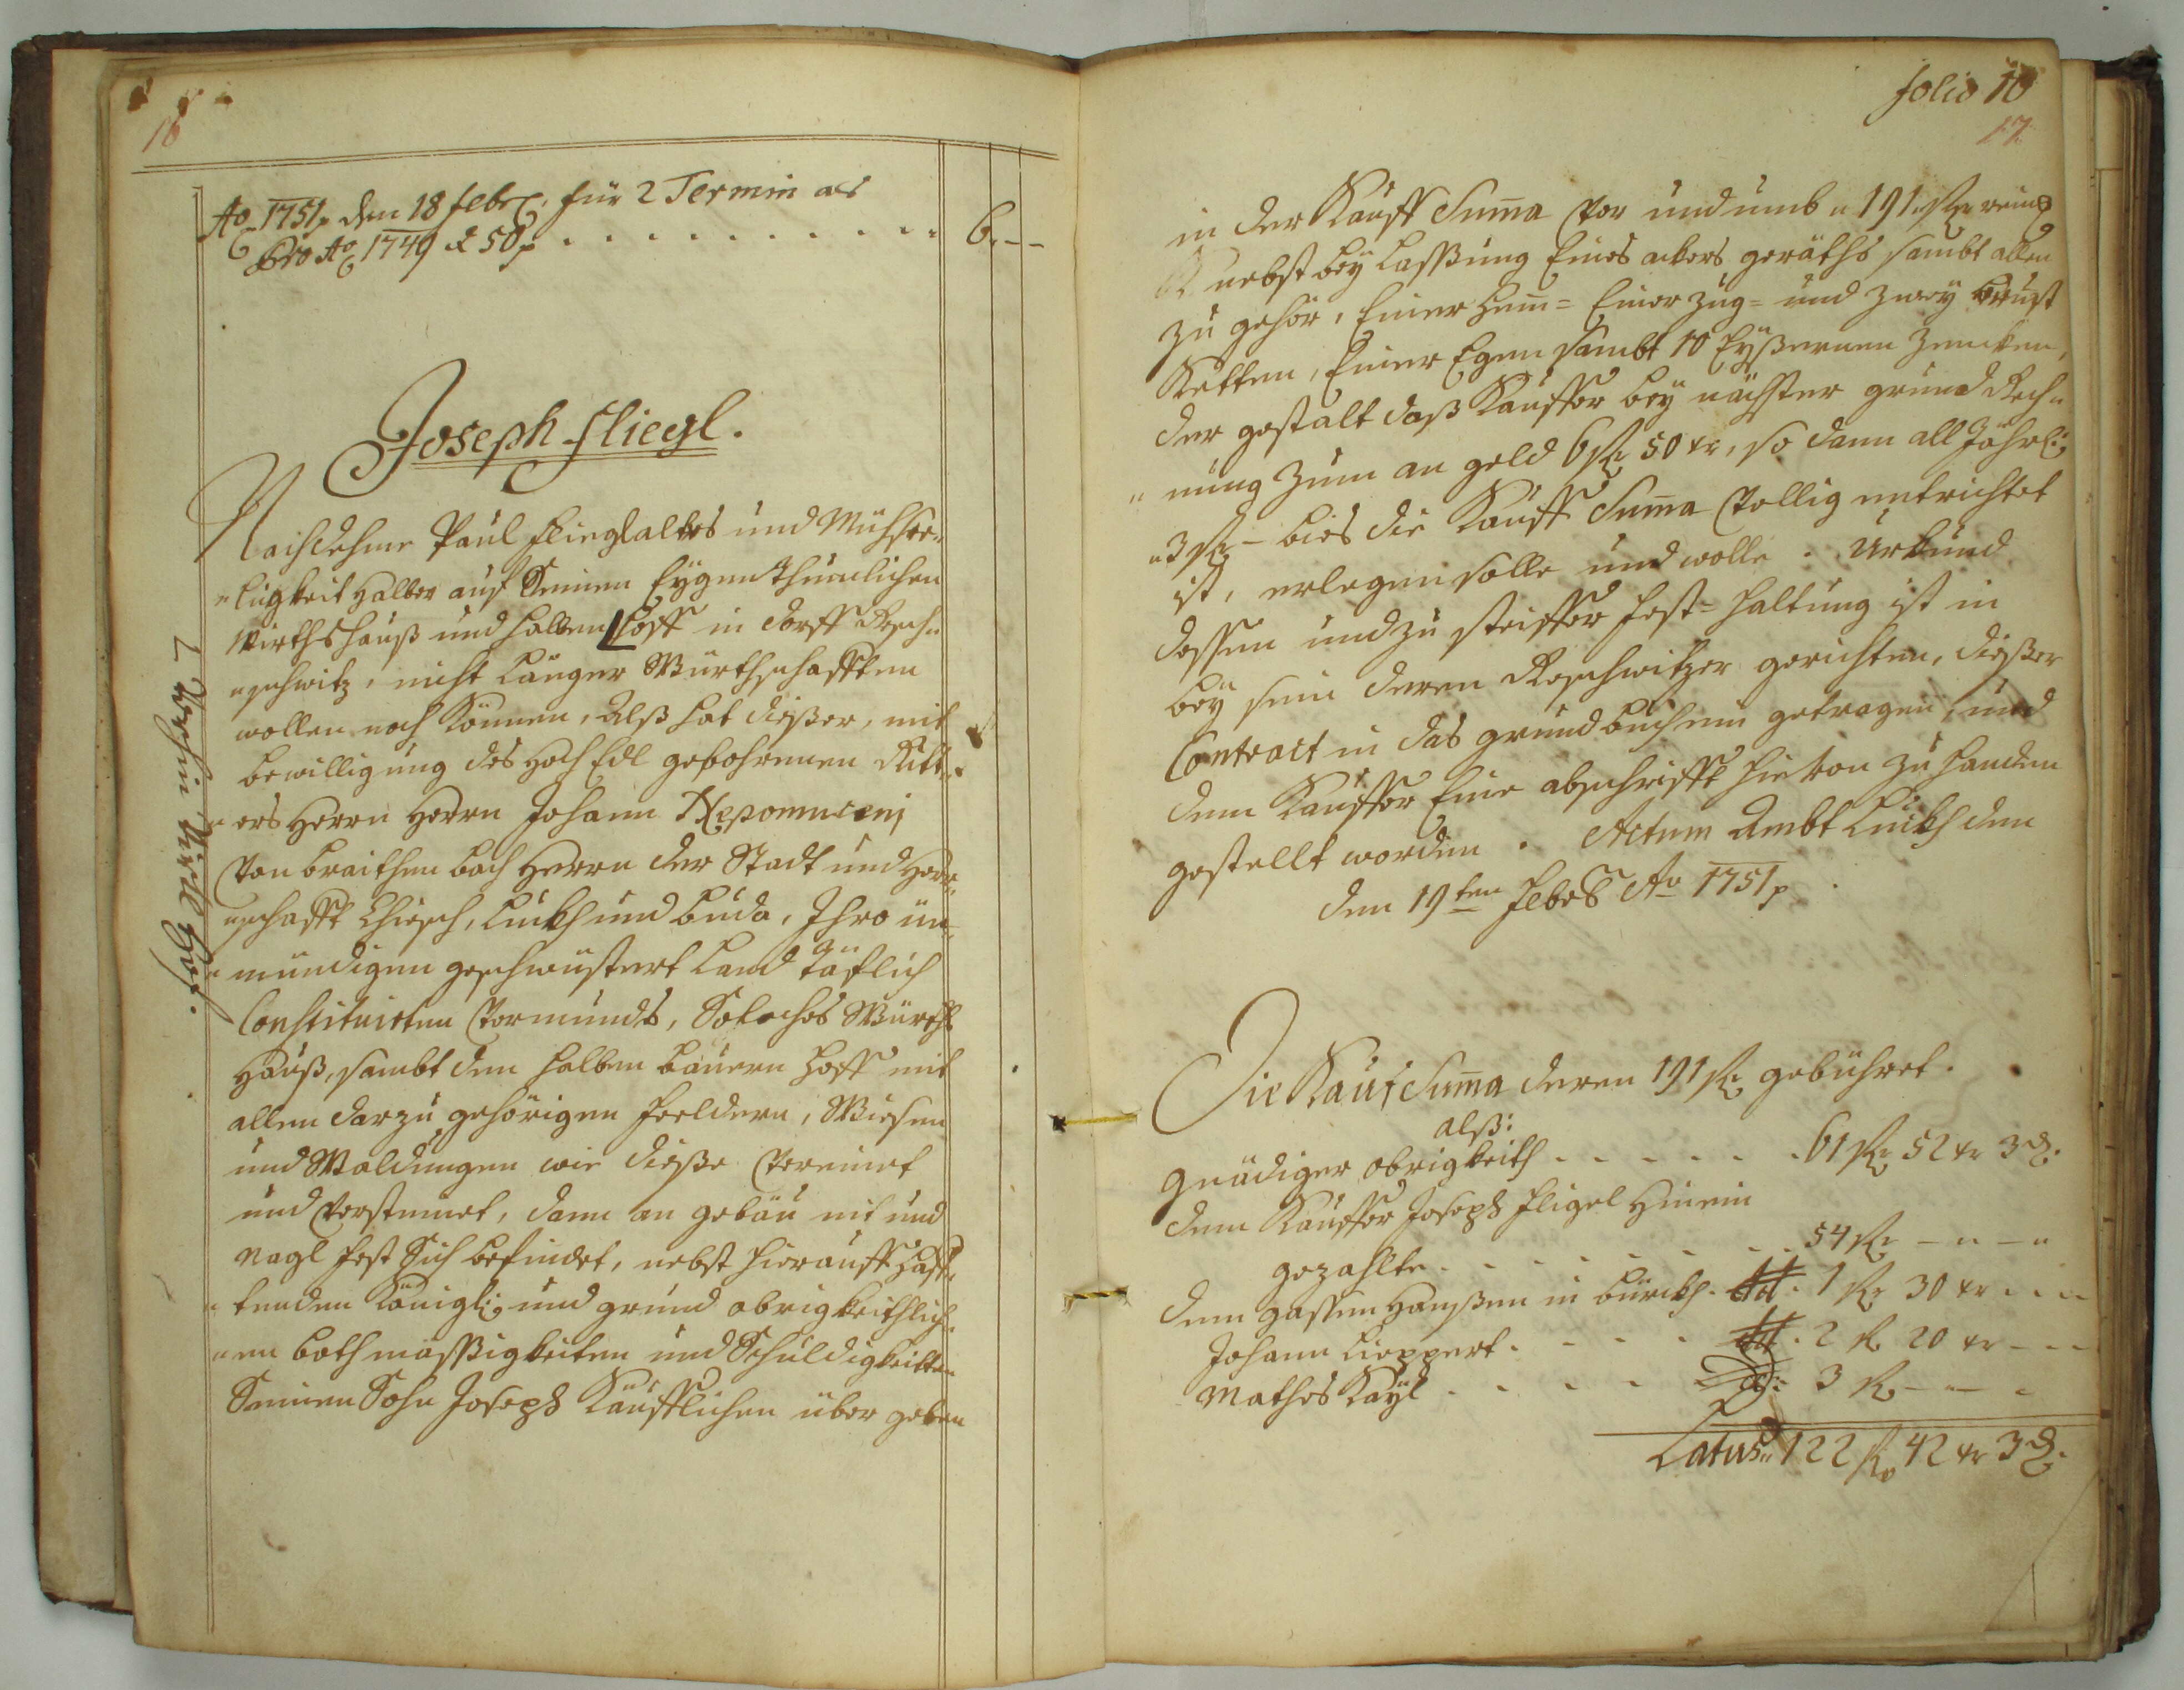 16
Ao 1751 den 18 Febr: für 2 Termin als
Pro Ao 1749 & 50 . . . . . . . . . . 6.--
Joseph Fliegl.
Nachdeme Paul Fliegl alters und Mühsee-
ligkeit halber auf Seinen Eygenthumlichen
Wirthshauß und halben Hoff in dorff Resch-
schwitz, nicht länger Würthschafften
wollen noch Können, Alß hat dießer, mit
bewilligung des Hoch Edl gebohrnen Ritt-
ers Herrn Herrn Johann Nepomuceni
von braithenbach Herrn der Stadt und Herr-
schafft Chiesch, Luckh und buda, Ihro un-
mündigen geschwüstert Land täflich
Constituirten Vormunds, Solches Würths
Hauß, sambt dem halben bauern Hoff mit
allen darzu gehörigen Feeldern, Wiesen
und Waldungen wie dieße vereinet
und versteinet, dann an gebäu nit und
Nagl fest Sich befindet, nebst hierauff haff-
tenden Königl: und grund obrigkeithlich-
en bothmässigkeiten und Schuldigkeitten
Seinen Sohn Joseph Käufflichen über geben
folio 10
17
in der Kauff Suma vor und umb 191 fl
nebst beylassung Eines ackers geräths sambt allen
zu gehör, Einer Hem= Einer Zug= und zwey brust
Ketten, Einer Egen sambt 10 Eyßernen Zencken,
der gestalt daß Kauffer bey nächster grund Rech-
nung zum an geld 6 fl 50 xr, so dann all Jährl:
3 fl – bies die Kauff Suma völlig entrichtet
ist, erlegen solle und wolle. Urkund
dessen und zu steiffer fest=haltung ist in
bey sein deren Reschwitzer gerichten, dießer
Contract in das grundbuch ein getragen, und
dem Kauffer Eine abschrifft hievon zu handen
gestellt worden. Actum Ambt Luckh den
den 19ten Febr Ao 1751
Die Kauf Suma deren 191 fl gebühret.
alß:
gnädiger obrigkeith . . . . . . 61 fl 52 xr 3 d.
dem Kauffer Joseph Fligel Hinein
gezahlte . . . . . . 54 fl – " – "
dem gassen Hanßen in bürckh . dt . 1 fl 30 xr – –
Johann Lieppert . . . . dt . 2 fl 20 xr – –
Mathes Käyl . . . . . 3 fl – – –
Latus 122 fl 42 xr 3 d.